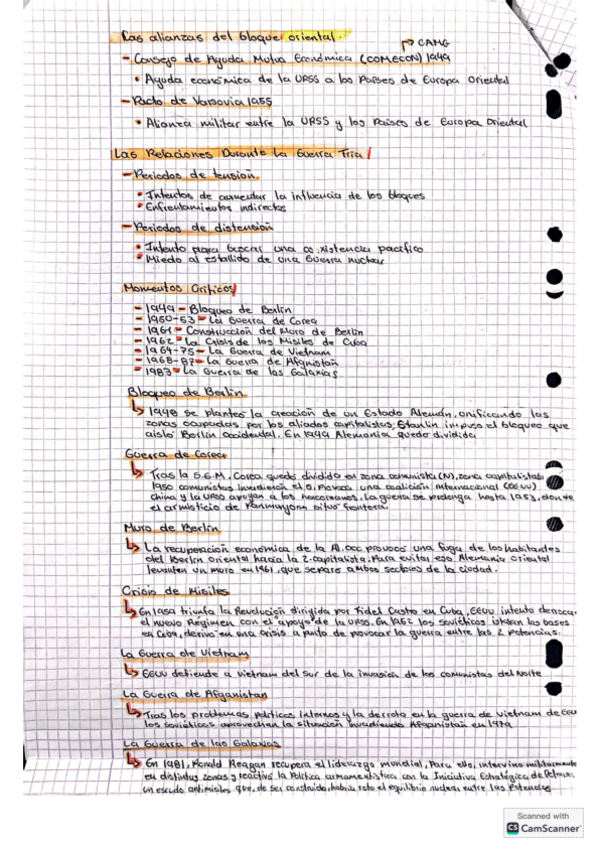 Las alianzas del bloque oriental.
→ CAMG
- Consejo de Ayuda Mutua Económica (COMECON) 1949
• Ayuda económica de la URSS a los Países de Europa Oriental
- Pacto de Varsovia 1955
• Alianza militar entre la URSS y los países de Europa Oriental
Las Relaciones Durante La Guerra Fría
- Periodos de tensión
• Intentos de aumentar la influencia de los bloques
• Enfrentamientos indirectos
- Periodos de distensión
• Intento para buscar una co existencia pacífico
• Miedo al estallido de una Guerra nuclear
Momentos Críticos
- 1949 - Bloqueo de Berlín
- 1950-53 - La Guerra de Corea
- 1961 - Construcción del Muro de Berlín
- 1962 - La Crisis de los Misiles de Cuba
- 1964-75 - La Guerra de Vietnam
- 1968-87 - La Guerra de Afganistán
- 1983 - La Guerra de las Galaxias
Bloqueo de Berlín
↳ 1948 se plantea la creación de un Estado Alemán, unificando las
zonas ocupadas por los aliados capitalistas, Stanlin impuso el bloqueo que
aisló Berlín occidental. En 1949 Alemania quedo dividida
Guerra de Corea
↳ Tras la S.G.M, Corea quedó dividida en zona comunista (N), zona capitalista
1950 comunistas invadieron el S. Provoca una coalición internacional (EEUU)
China y la URSS apoyan a los norcoreanos. La guerra se prolonga hasta 1953, donde
el armisticio de Panmunjonn situo frontera.
Muro de Berlín
↳ La recuperación económica de la Al.occ provocó una fuga de los habitantes
del Berlín Oriental hacia la Z.capitalista. Para evitar eso Alemania Oriental
levanten un muro en 1961, que separó ambos sectores de la ciudad.
Crisis de Misiles
↳ En 1959 triunfa la Revolución dirigida por Fidel Castro en Cuba, EEUU intento derrocar
el nuevo Régimen con el apoyo de la URSS. En 1962 los soviéticos las bases
en Cuba, derivo en una crisis a punto de provocar la guerra entre las 2 potencias.
La Guerra de Vietnam
↳ EEUU defiende a Vietnam del Sur de la invasión de los comunistas del Norte
La Guerra de Afganistan
↳ Tras los problemas políticos internos y la derrota en la guerra de Vietnam de EEUU
los soviéticos aprovechan la situación invadiendo Afganistán en 1979
La Guerra de las Galaxias
↳ En 1981, Ronald Reagan recupera el liderazgo mundial, Para ello, intervino militarmente
en distintas zonas y reactivó la Política armamentística con la Iniciativa Estratégica de Defensa,
un escudo antimisiles que, de ser construido, habría roto el equilibrio nuclear entre las Potencias
Scanned with
CS CamScanner